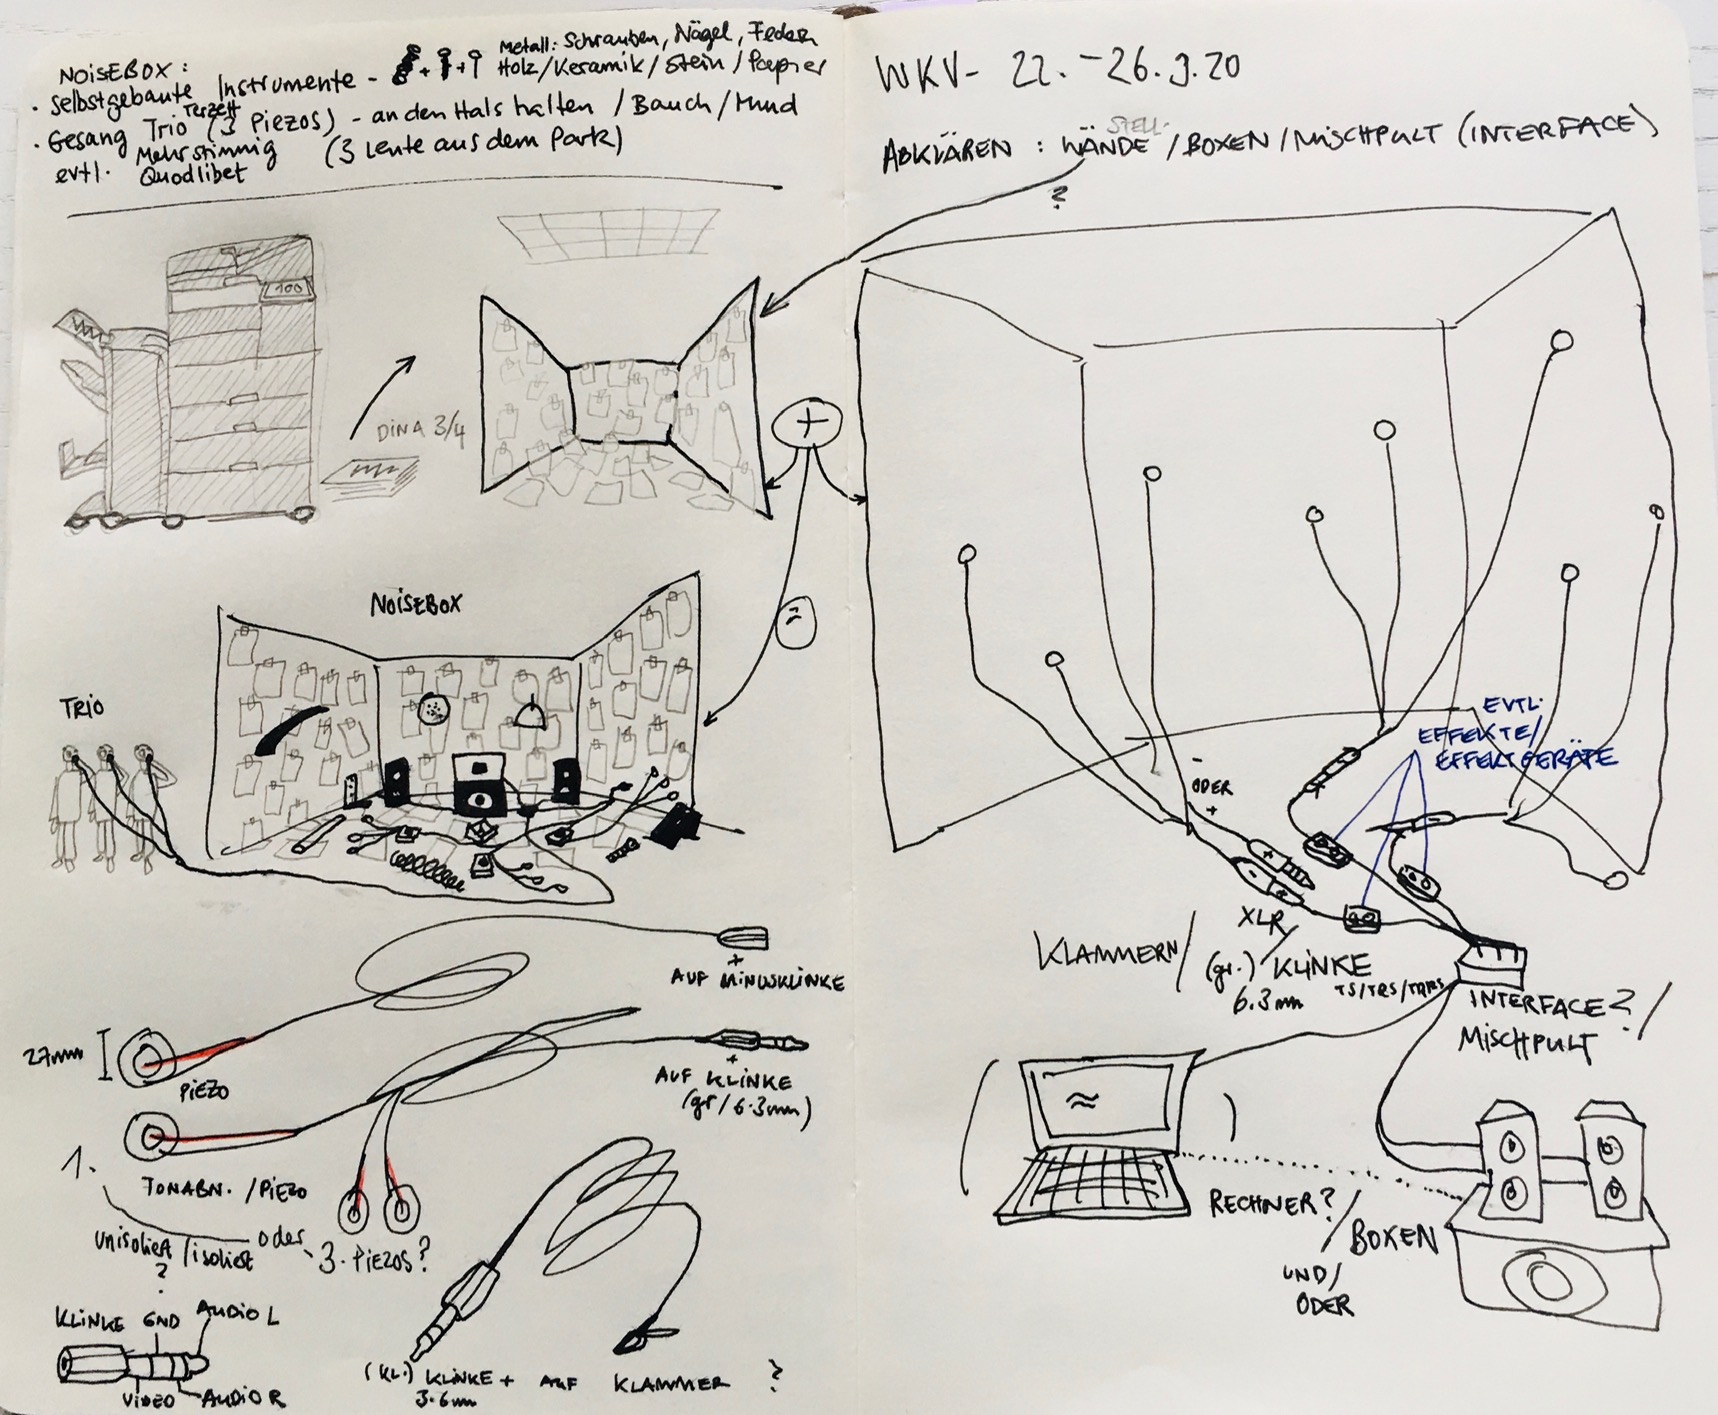 NOISEBOX:
Metall: Schrauben, Nägel, Federn
· Selbstgebaute Instrumente - + + Holz/Keramik/Stein/Papier
Terzett
· Gesang Trio (3 Piezos) - an den Hals halten / Bauch / Mund
evtl. Mehrstimmig (3 Leute aus dem Park)
Quodlibet
100
DINA 3/4
+
NOISEBOX
2
TRIO
+
AUF MINUSKLINKE
27mm
PIEZO
+
AUF KLINKE
(gr/6.3mm)
1.
TONABN. / PIEZO
unisoliert / isoliert oder 3. PIEZOS?
?
KLINKE GND AUDIO L
VIDEO AUDIO R
(KL.) KLINKE + AUF KLAMMER ?
3.6mm
WKV - 22. - 26.9.20
STELL-
ABKLÄREN : WÄNDE / BOXEN / MISCHPULT (INTERFACE)
?
EVTL.
EFFEKTE/
EFFEKTGERÄTE
-
ODER
+
+
-
XLR
KLAMMERN / (gr.) / KLINKE
6.3mm TS/TRS/TRRS
INTERFACE? /
MISCHPULT
≈
( )
RECHNER?
/ BOXEN
UND/
ODER